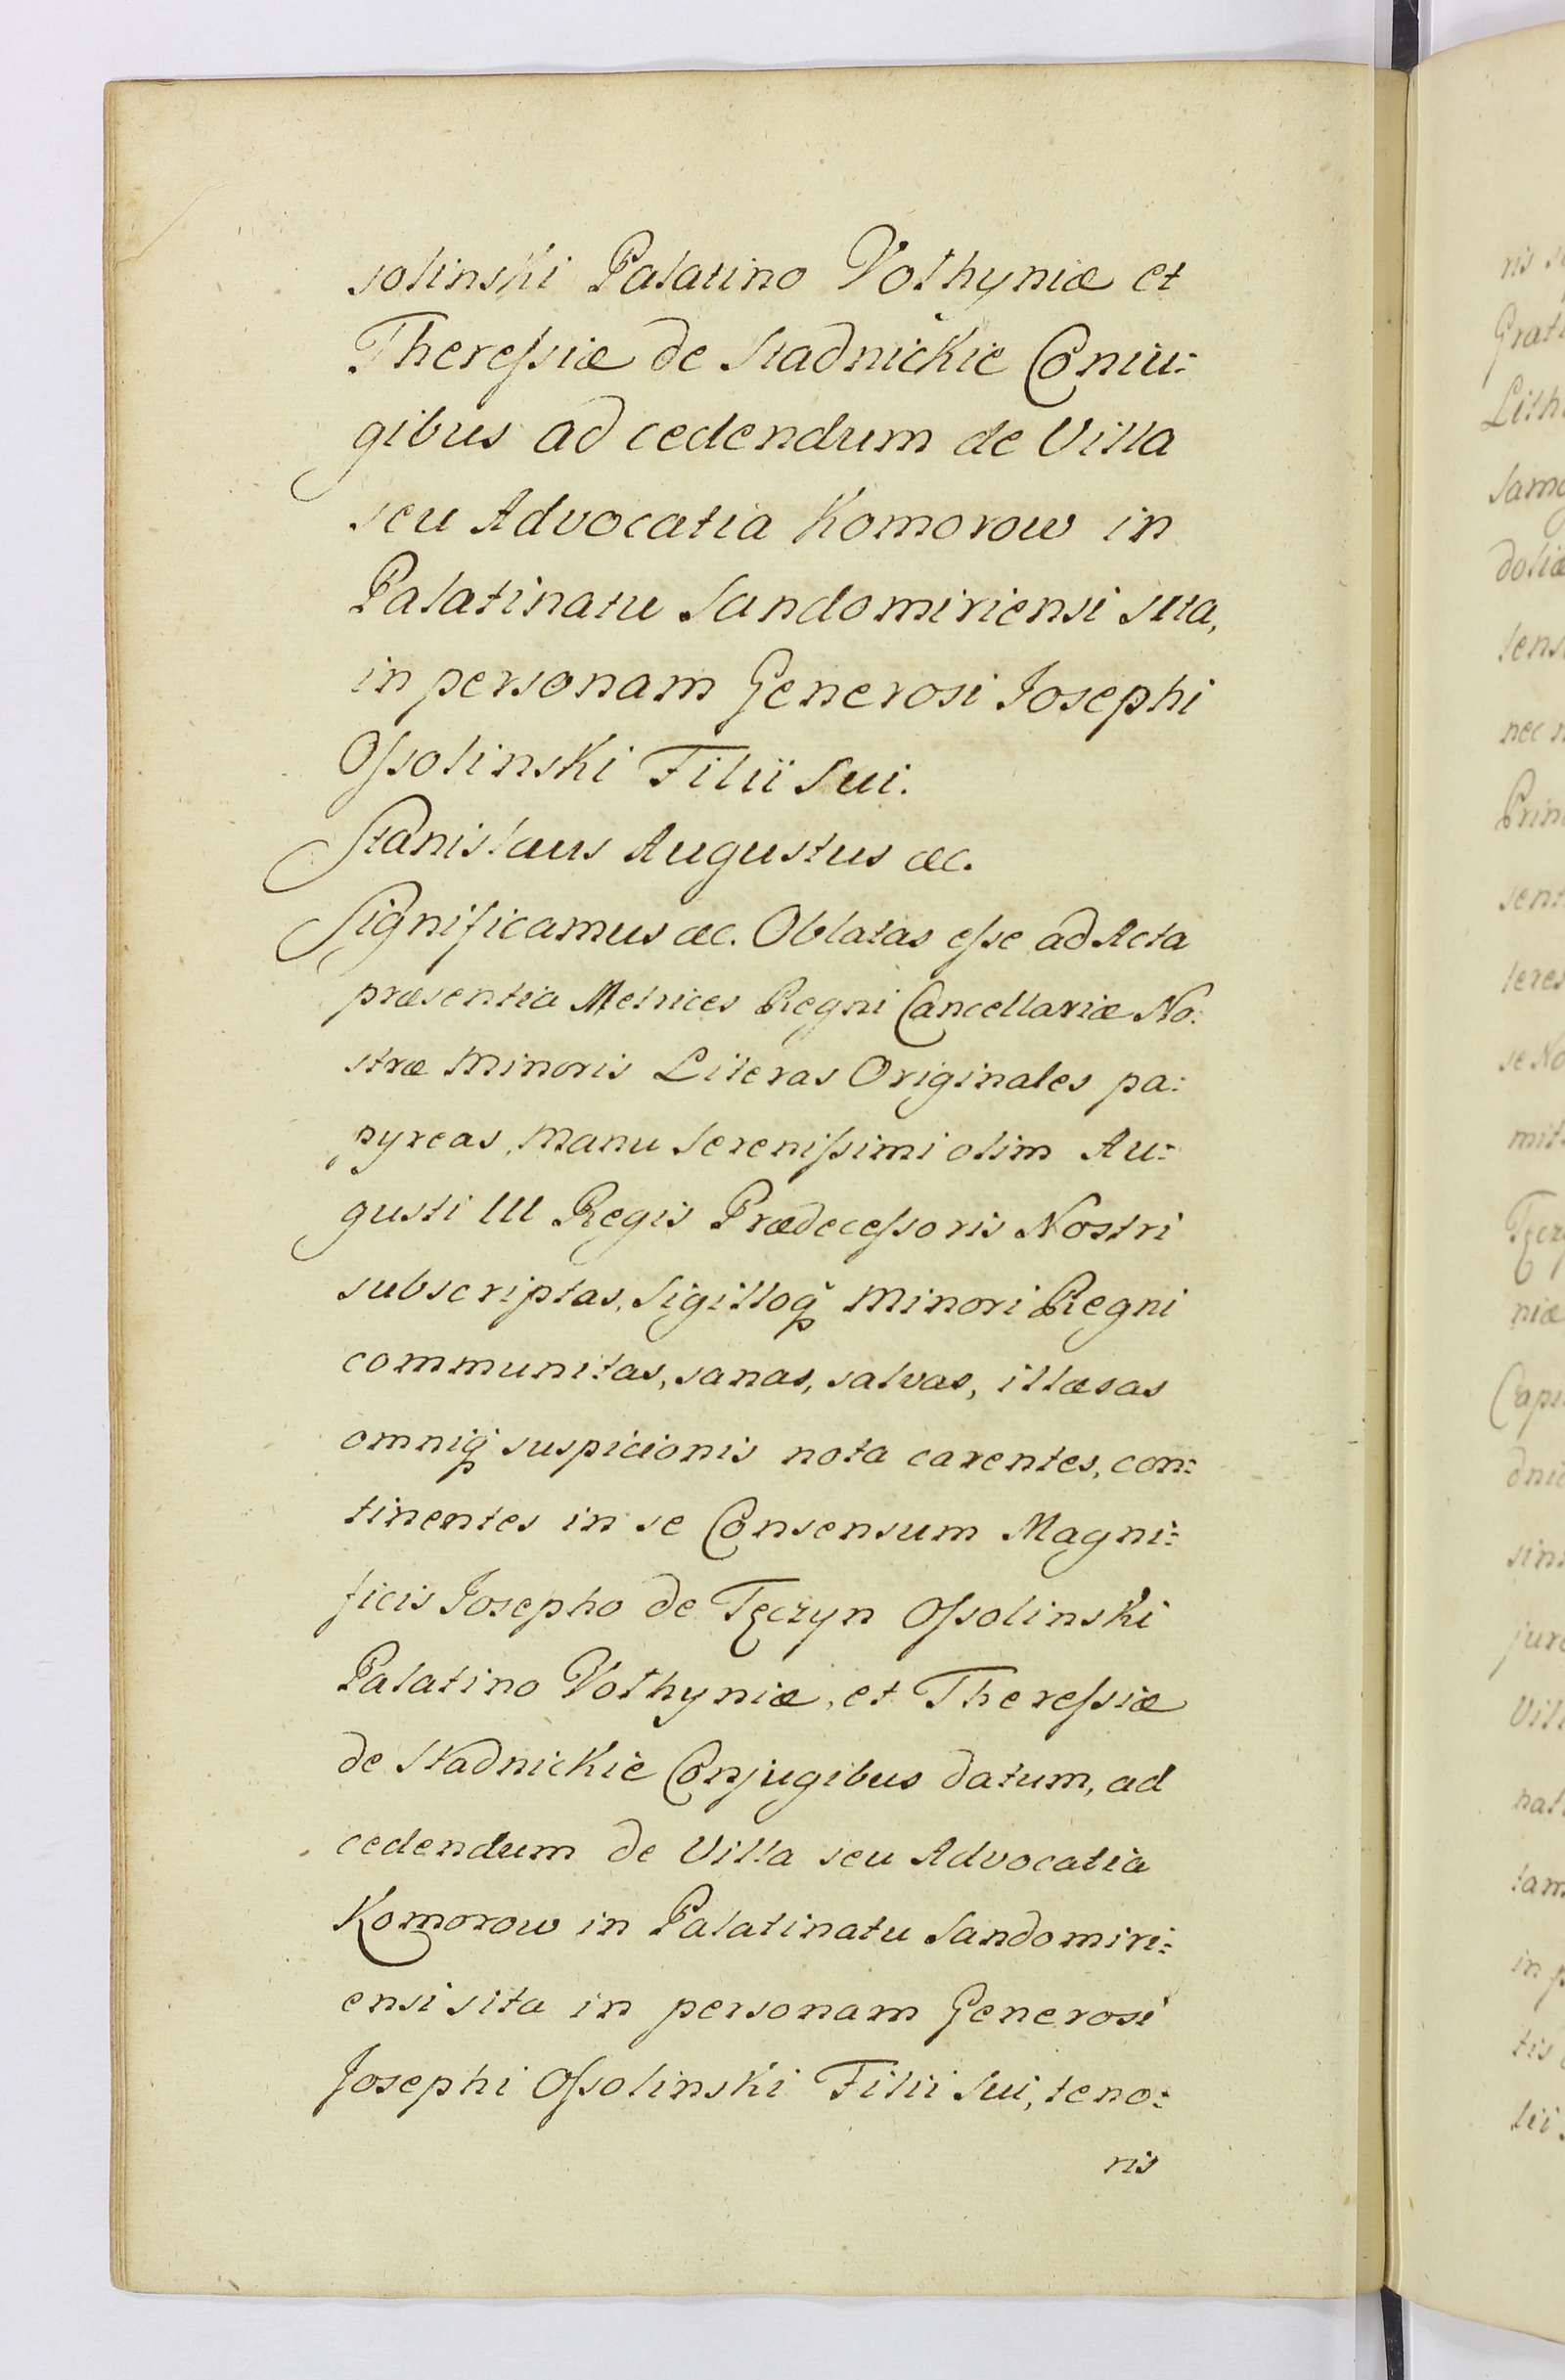 solinski Palatino Volhyniæ et
Theressiæ de Stadnickie Coniu=
gibus ad cedendum de Villa
seu Advocatia Komorow in
Palatinatu Sandomiriensi sita,
in personam Generosi Josephi
Ossolinski Filii Sui.
Stanislaus Augustus &c.
Significamus &c. Oblatas esse ad Acta
præsentia Metrices Regni Cancellariæ No:
stræ Minoris Literas Originales pa:
pyreas, Manu Serenissimi olim Au=
gusti III Regis Prædecessoris Nostri
subscriptas, Sigilloq́ Minori Regni
communitas, sanas, salvas, illæsas
omniq́ suspicionis nota carentes, con=
tinentes in se Consensum Magni=
ficis Josepho de Tęczyn Ossolinski
Palatino Volhyniæ, et Theressiæ
de Stadnickie Conjugibus datum, ad
cedendum de Villa seu Advocatia
Komorow in Palatinatu Sandomiri=
ensi sita in personam Generosi
Josephi Ossolinski Filii Sui, teno=
ris